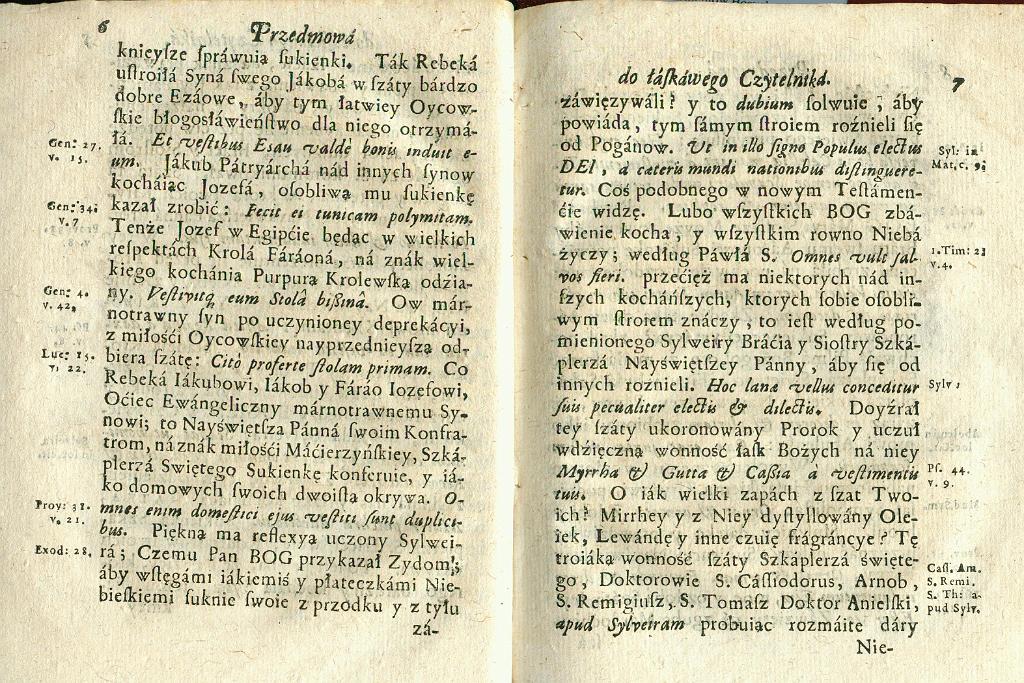 6
Przedmowá
knieyſze ſpráwuią ſukienki. Ták Rebeká
uſtroiłá Syná ſwego Jákobá w ſzáty bárdzo
dobre Ezáowe, áby tym łatwiey Oycow-
ſkie błogosłáwieńſtwo dla niego otrzymá-
łá. Et veſtibus Esau valdè bonis induit e-
um. Jákub Pátryárchá nád innych ſynow
kocháiąc Jozefá, oſobliwą mu ſukienkę
kazał zrobić: Fecit ei tunicam polymitam.
Tenże Jozef w Egipćie będąc w wielkich
reſpektách Krolá Fáráoná, ná znák wiel-
kiego kochánia Purpurą Krolewſką odźia-
ny. Veſtivitq́ eum Stolâ biſſinâ. Ow már-
notrawny ſyn po uczynioney deprekácyi,
z miłośći Oycowſkiey nayprzednieyſzą od-
biera ſzátę: Citò proferte ſtolam primam. Co
Rebeká Iákubowi, Iákob y Fáráo Iozefowi,
Oćiec Ewángeliczny márnotrawnemu Sy-
nowi; to Nayświętſza Pánná ſwoim Konfra-
trom, ná znák miłośći Máćierzyńſkiey, Szká-
plerzá Swiętego Sukienkę konferuie, y iá-
ko domowych ſwoich dwoiſtą okrywa. O-
mnes enim domeſtici ejus veſtiti ſunt duplici-
bus. Piękną ma reflexyą uczony Sylwei-
rá; Czemu Pan BOG przykazał Zydom,
áby wſtęgámi iákiemiś y płateczkámi Nie-
bieſkiemi ſuknie ſwoie z przodku y z tyłu
zá-
Gen: 27.
v. 15.
Gen: 34.
v. 7
Gen: 4.
v. 42,
Luc: 15.
v. 22.
Prov: 31.
v. 21.
Exod: 28.
do łáſkáwego Czytelniká.
7
záwięzywáli? y to dubium ſolwuie, áby
powiáda, tym ſámym ſtroiem roźnieli ſię
od Pogánow. Ut in illo ſigno Populus electus
DEI, à cæteris mundi nationibus diſtinguere-
tur. Coś podobnego w nowym Teſtámen-
ćie widzę. Lubo wſzyſtkich BOG zbá-
wienie kocha, y wſzyſtkim rowno Niebá
życzy; według Páwłá S. Omnes vult ſal-
vos fieri. przećięż ma niektorych nád in-
ſzych kocháńſzych, ktorych ſobie oſobli-
wym ſtroiem znáczy, to ieſt według po-
mienionego Sylweiry Bráćia y Sioſtry Szká-
plerzá Nayświętſzey Pánny, áby ſię od
innych roznieli. Hoc lanæ vellus conceditur
ſuis peculiariter electis & dilectis. Doyźrał
tey ſzáty ukoronowány Prorok y uczuł
wdzięczną wonność łaſk Bożych ná niey
Myrrha & Gutta & Caſſia à veſtimentis
tuis. O iák wielki zapách z ſzat Two-
ich? Mirrhey y z Niey dyſtyllowány Ole-
iek, Lewándę y inne czuię frágráncye? Tę
troiáką wonność ſzáty Szkáplerzá święte-
go, Doktorowie S. Cáſſiodorus, Arnob,
S. Remigiuſz, S. Tomasz Doktor Anielſki,
apud Sylveiram probuiąc rozmáite dáry
Nie-
Syl: in
Mat. c. 9.
1. Tim: 2
v. 4.
Sylv:
Pſ. 44.
v. 9.
Caſſ. Arn.
S. Remi.
S. Th: a-
pud Sylv.